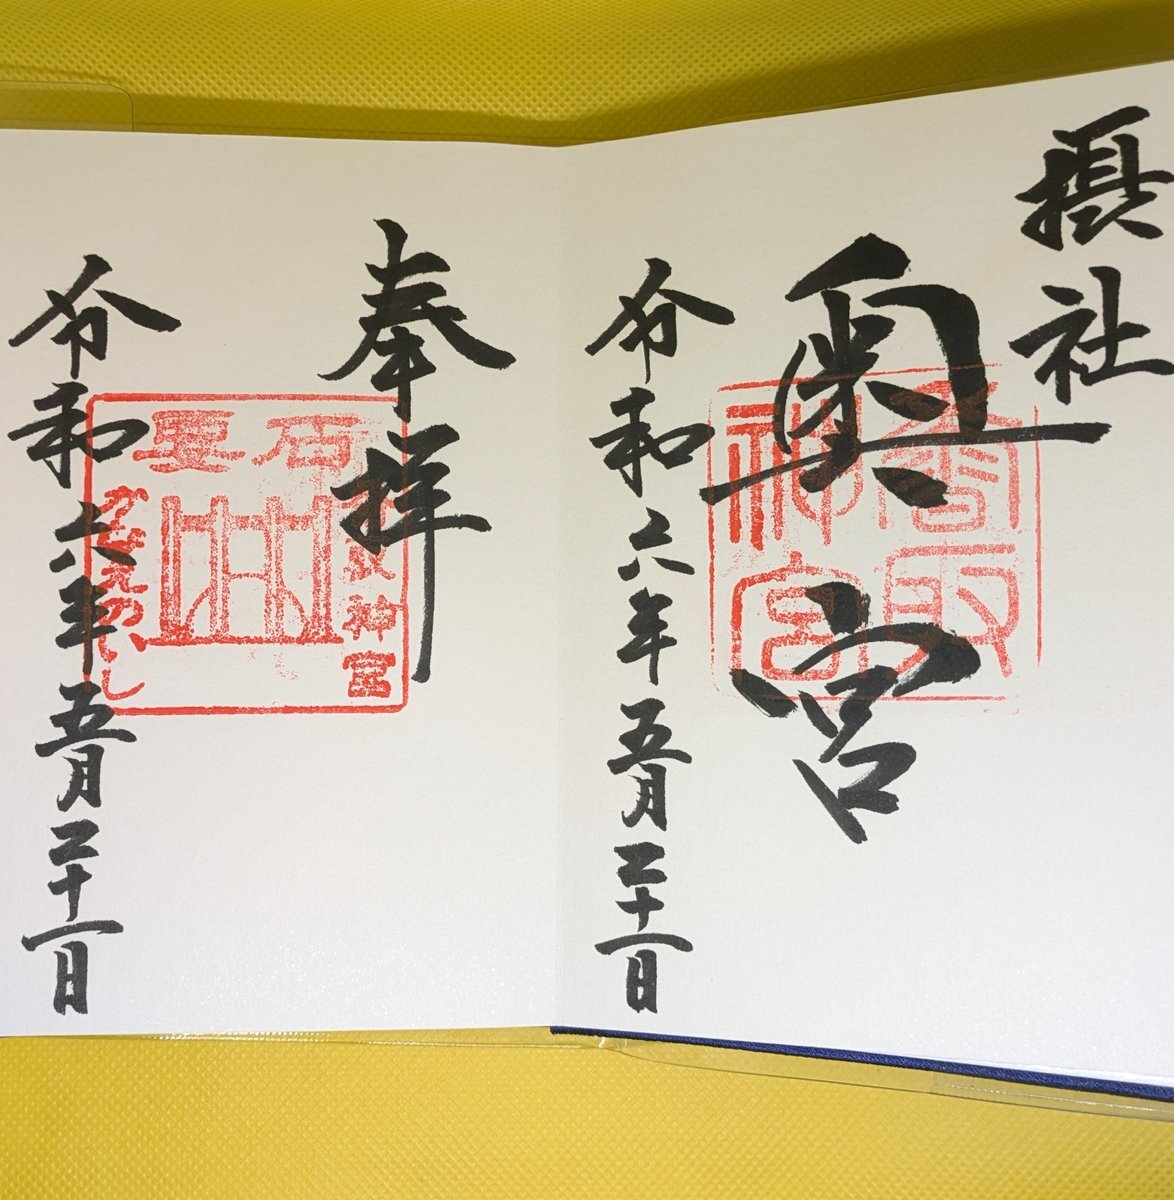 摂社
奥宮
香取
神宮
令和六年五月二十一日
奉拝
要石
香取神宮
かなめのいし
令和六年五月二十一日